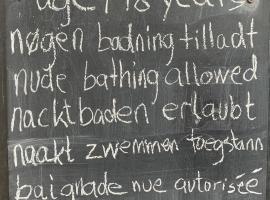 age 118 years
nøgen badning tilladt
nude bathing allowed
nackt baden erlaubt
naakt zwemmen toegstann
baignade nue autorisée